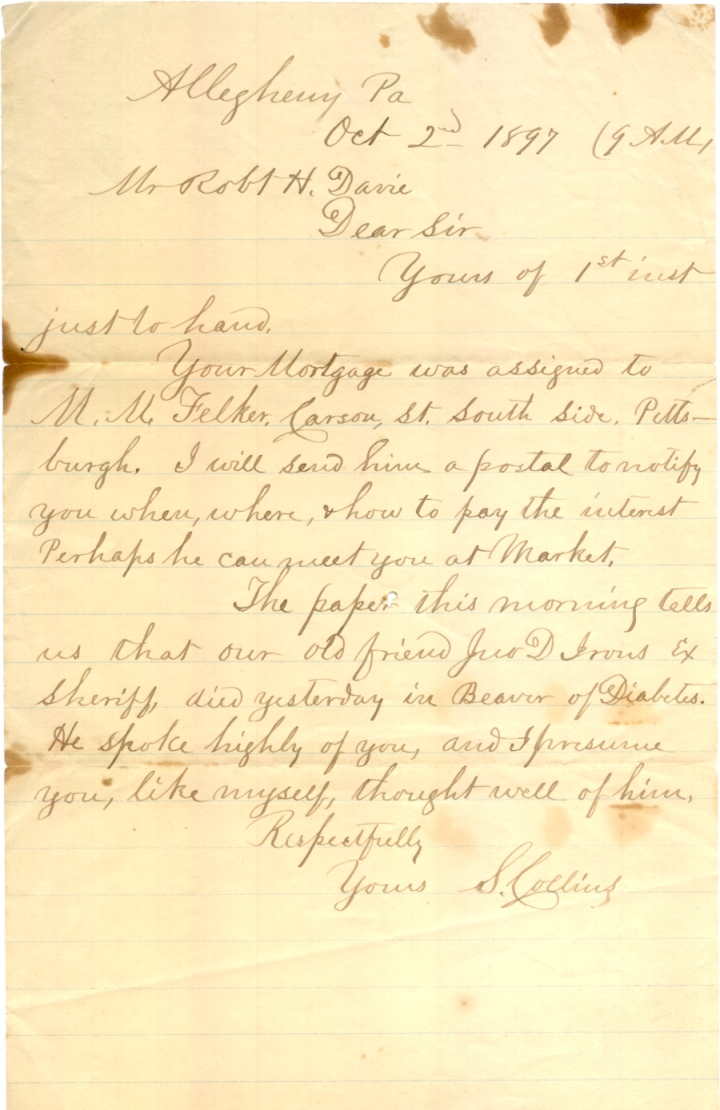 Allegheny Pa
Oct 2nd 1897 (9 AM)
Mr Robt H. Davie
Dear Sir
Yours of 1st inst
just to hand.
Your Mortgage was assigned to
M. M. Felker, Carson, St. South Side. Pitts-
burgh. I will send him a postal to notify
you when, where, & how to pay the interest
Perhaps he can meet you at Market.
The paper this morning tells
us that our old friend Jno D Irons Ex
Sheriff, died yesterday in Beaver of Diabetes.
He spoke highly of you, and I presume
you, like myself, thought well of him.
Respectfully
Yours S. Collins